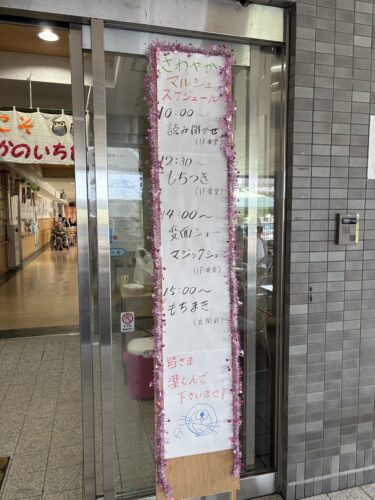 こそ
かのいち
さわやか
マルシェ
スケジュール
10:00〜
読み聞かせ
(1F食堂)
12:30〜
もちつき
(1F食堂)
14:00〜
変面ショー
マジックショー
(1F食堂)
15:00〜
もちまき
(玄関前)
皆さま
楽しんで
下さいませ!